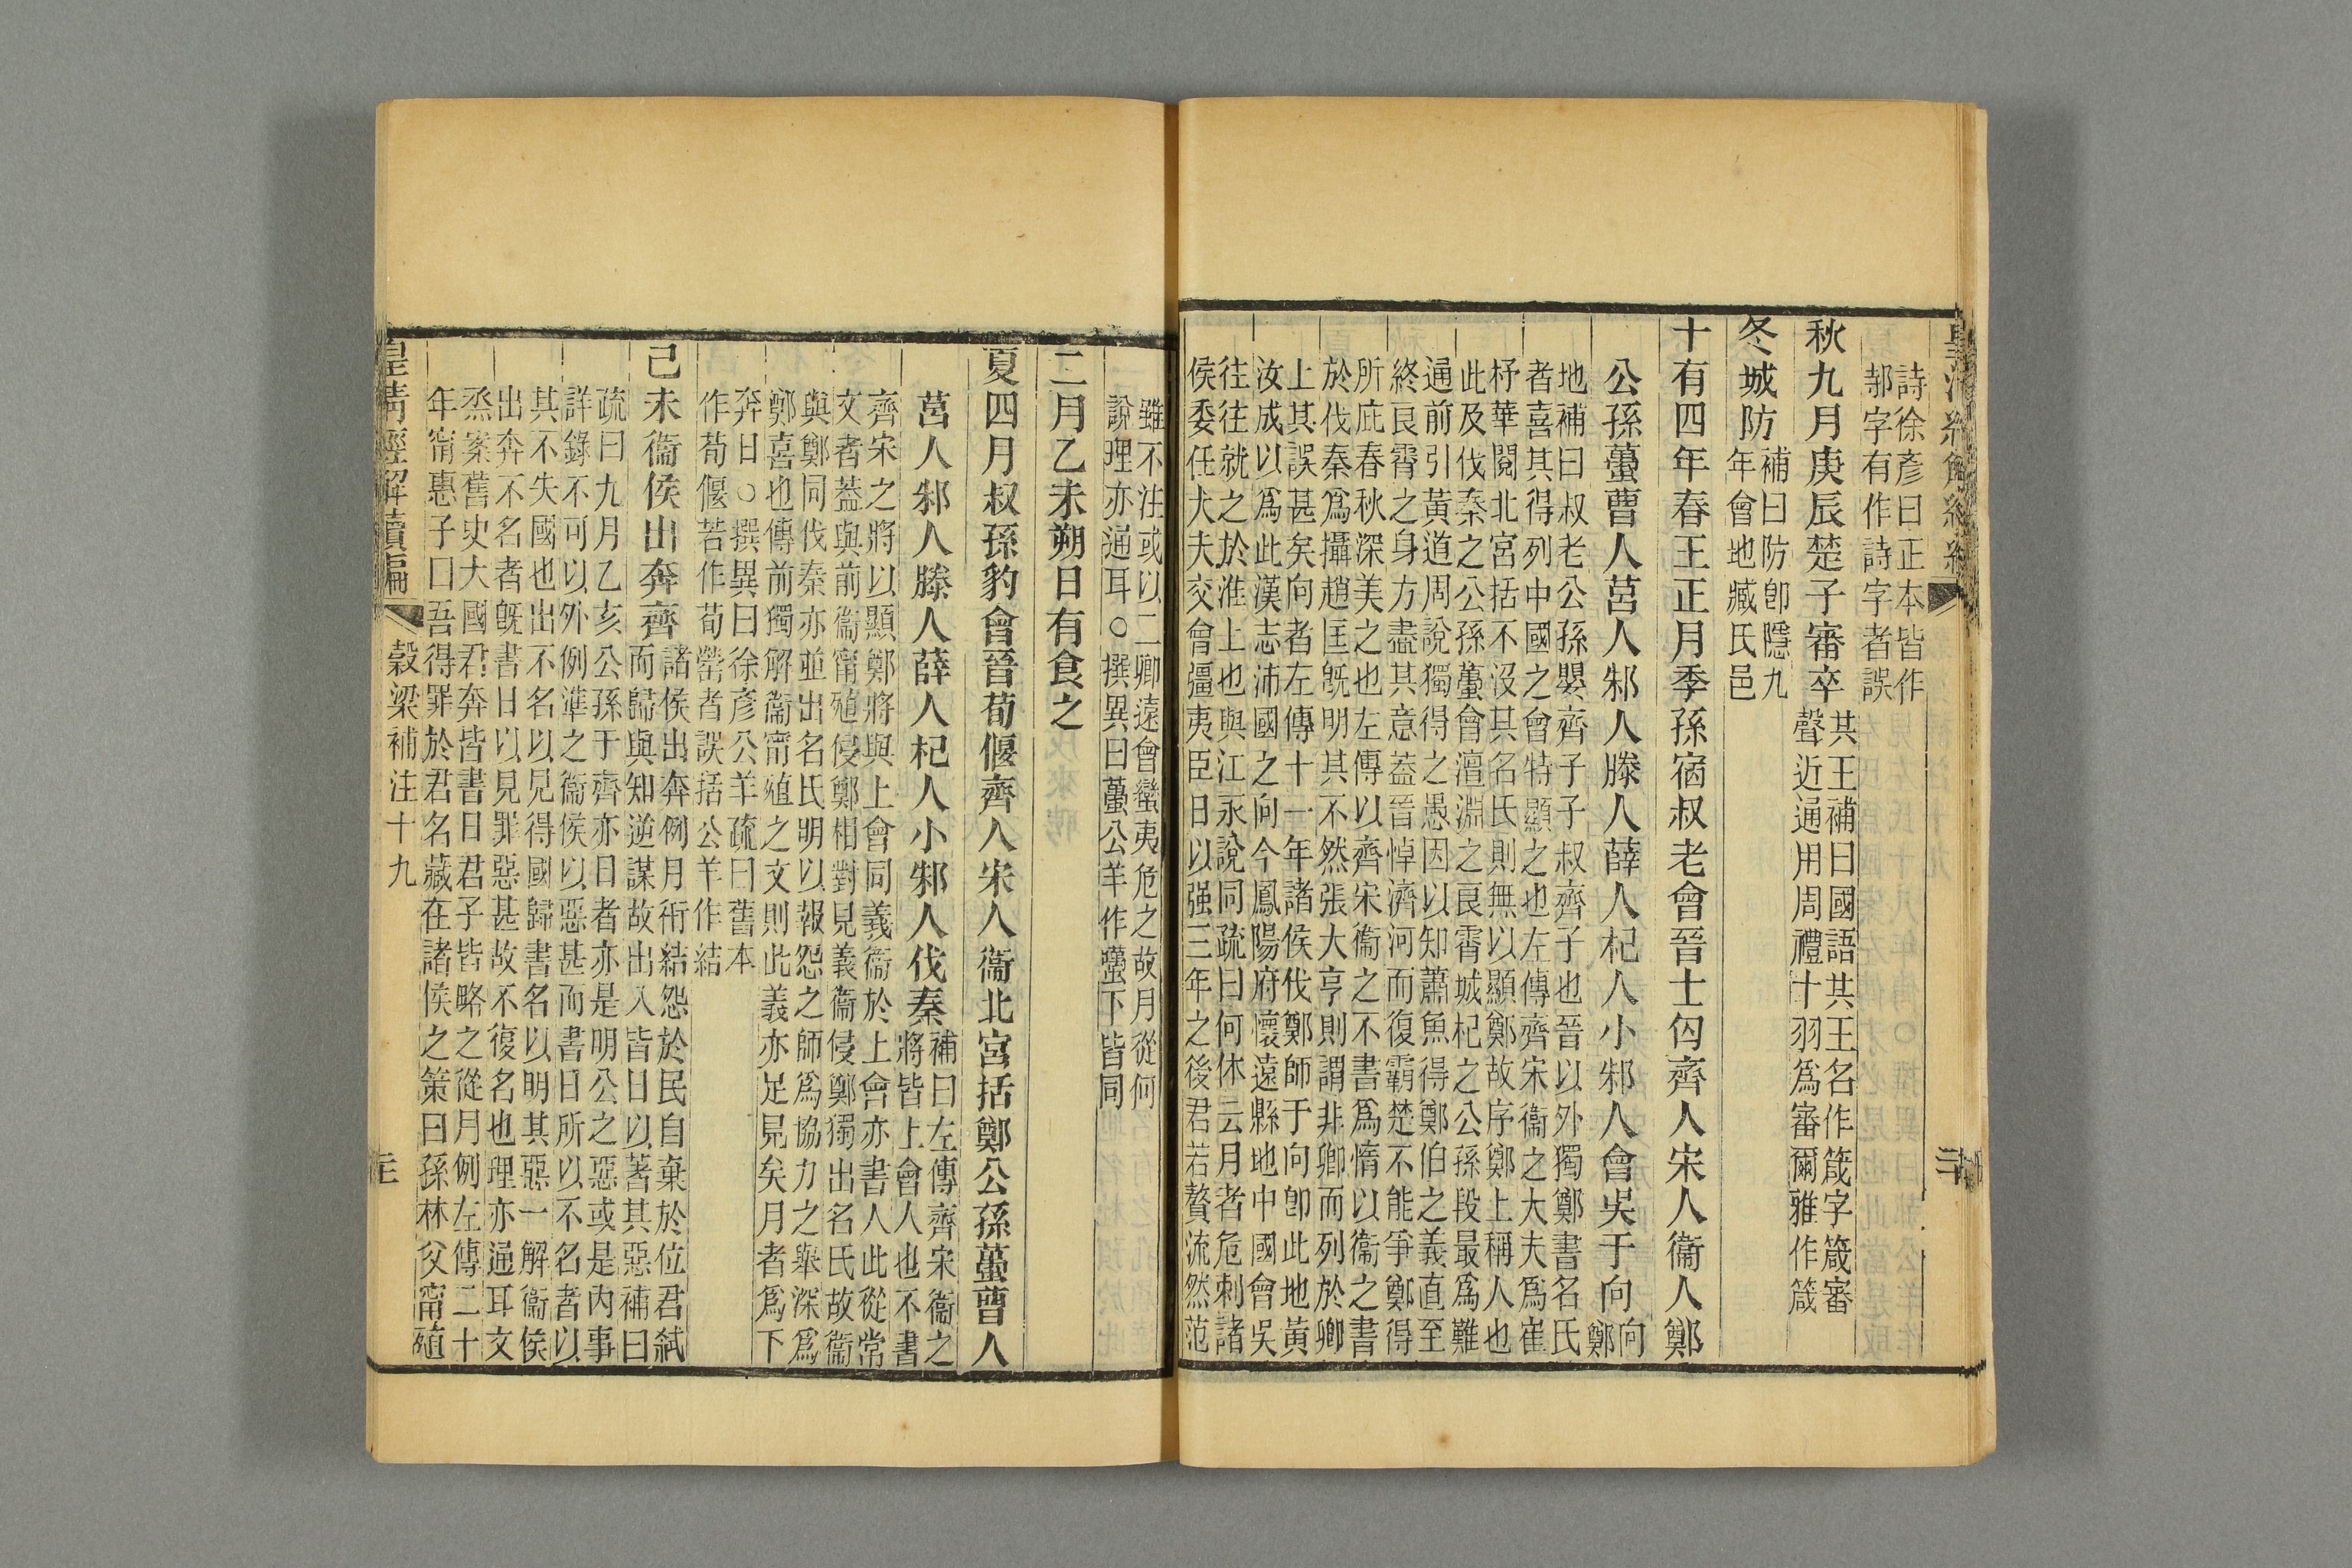 詩徐彥曰正本皆作
邿字有作詩字者誤
秋九月庚辰楚子審卒
共王補曰國語共王名作箴字箴審
聲近通用周禮十羽爲審爾雅作箴
冬城防
補曰防卽隱九
年會地臧氏邑
十有四年春王正月季孫宿叔老會晉士匄齊人宋人衞人鄭
公孫蠆曹人莒人邾人滕人薛人杞人小邾人會吳于向
向
鄭
地補曰叔老公孫嬰齊子子叔齊子也晉以外獨鄭書名氏
者喜其得列中國之會特顯之也左傳齊宋衞之大夫爲崔
杼華閱北宮括不沒其名氏則無以顯鄭故序鄭上稱人也
此及伐秦之公孫蠆會澶淵之良霄城杞之公孫段最爲難
通前引黃道周說獨得之愚因以知蕭魚得鄭伯之義直至
終良霄之身方盡其意葢晉悼濟河而復霸楚不能爭鄭得
所庇春秋深美之也左傳以齊宋衞之不書爲惰以衞之書
於伐秦爲攝趙匡旣明其不然張大亨則謂非卿而列於卿
上其誤甚矣向者左傳十一年諸侯伐鄭師于向卽此地黃
汝成以爲此漢志沛國之向今鳳陽府懷遠縣地中國會吳
往往就之於淮上也與江永說同疏曰何休云月者危刺諸
侯委任大夫交會彊夷臣日以强三年之後君若贅流然范
雖不注或以二卿遠會蠻夷危之故月從何
說理亦通耳○撰異曰蠆公羊作囆下皆同
二月乙未朔日有食之
夏四月叔孫豹會晉荀偃齊人宋人衞北宮括鄭公孫蠆曹人
莒人邾人滕人薛人杞人小邾人伐秦
補曰左傳齊宋衞之
將皆上會人也不書
齊宋之將以顯鄭將與上會同義衞於上會亦書人此從常
文者葢與前衞甯殖侵鄭相對見義衞侵鄭獨出名氏故衞
與鄭同伐秦亦並出名氏明以報怨之師爲協力之舉深爲
鄭喜也傳前獨解衞甯殖之文則此義亦足見矣月者爲下
奔日○撰異曰徐彥公羊疏曰舊本
作荀偃若作荀罃者誤括公羊作結
己未衞侯出奔齊
諸侯出奔例月衎結怨於民自棄於位君弒
而歸與知逆謀故出入皆日以著其惡補曰
疏曰九月乙亥公孫于齊亦日者亦是明公之惡或是內事
詳錄不可以外例準之衞侯以惡甚而書日所以不名者以
其不失國也出不名以見得國歸書名以明其惡一解衞侯
出奔不名者旣書日以見罪惡甚故不復名也理亦通耳文
烝案舊史大國君奔皆書日君子皆略之從月例左傳二十
年甯惠子曰吾得罪於君名藏在諸侯之策曰孫林父甯殖
皇淸經解續編
穀梁補注十九